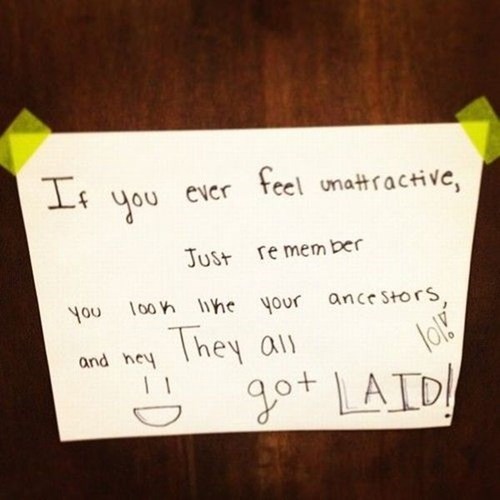 If you ever feel unattractive,
Just remember
you look like your ancestors,
and hey They all
lol!
got LAID!